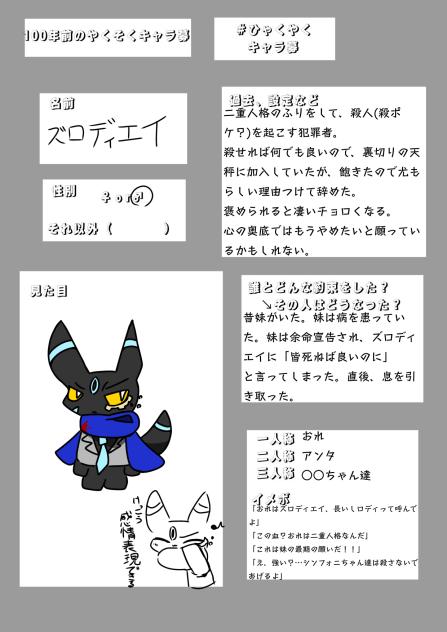 100年前のやくそくキャラ募
#ひゃくやく
キャラ募
名前
ズロディエイ
性別
♀ or ♂
それ以外（　　　　）
過去、設定など
二重人格のふりをして、殺人(殺ポ
ケ?)を起こす犯罪者。
殺せれば何でも良いので、裏切りの天
秤に加入していたが、飽きたので尤も
らしい理由つけて辞めた。
褒められると凄いチョロくなる。
心の奥底ではもうやめたいと願ってい
るかもしれない。
見た目
けっこう
感情表現
できる
誰とどんな約束をした？
↘その人はどうなった？
昔妹がいた。妹は病を患ってい
た。妹は余命宣告され、ズロディ
エイに「皆死ねば良いのに」
と言ってしまった。直後、息を引
き取った。
一人称 おれ
二人称 アンタ
三人称 〇〇ちゃん達
イメボ
「おれはズロディエイ、長いしロディって呼んで
よ」
「この血？おれは二重人格なんだ」
「これは妹の最期の願いだ！！」
「え、強い？…シンフォニちゃん達は殺さないで
おげるよ」